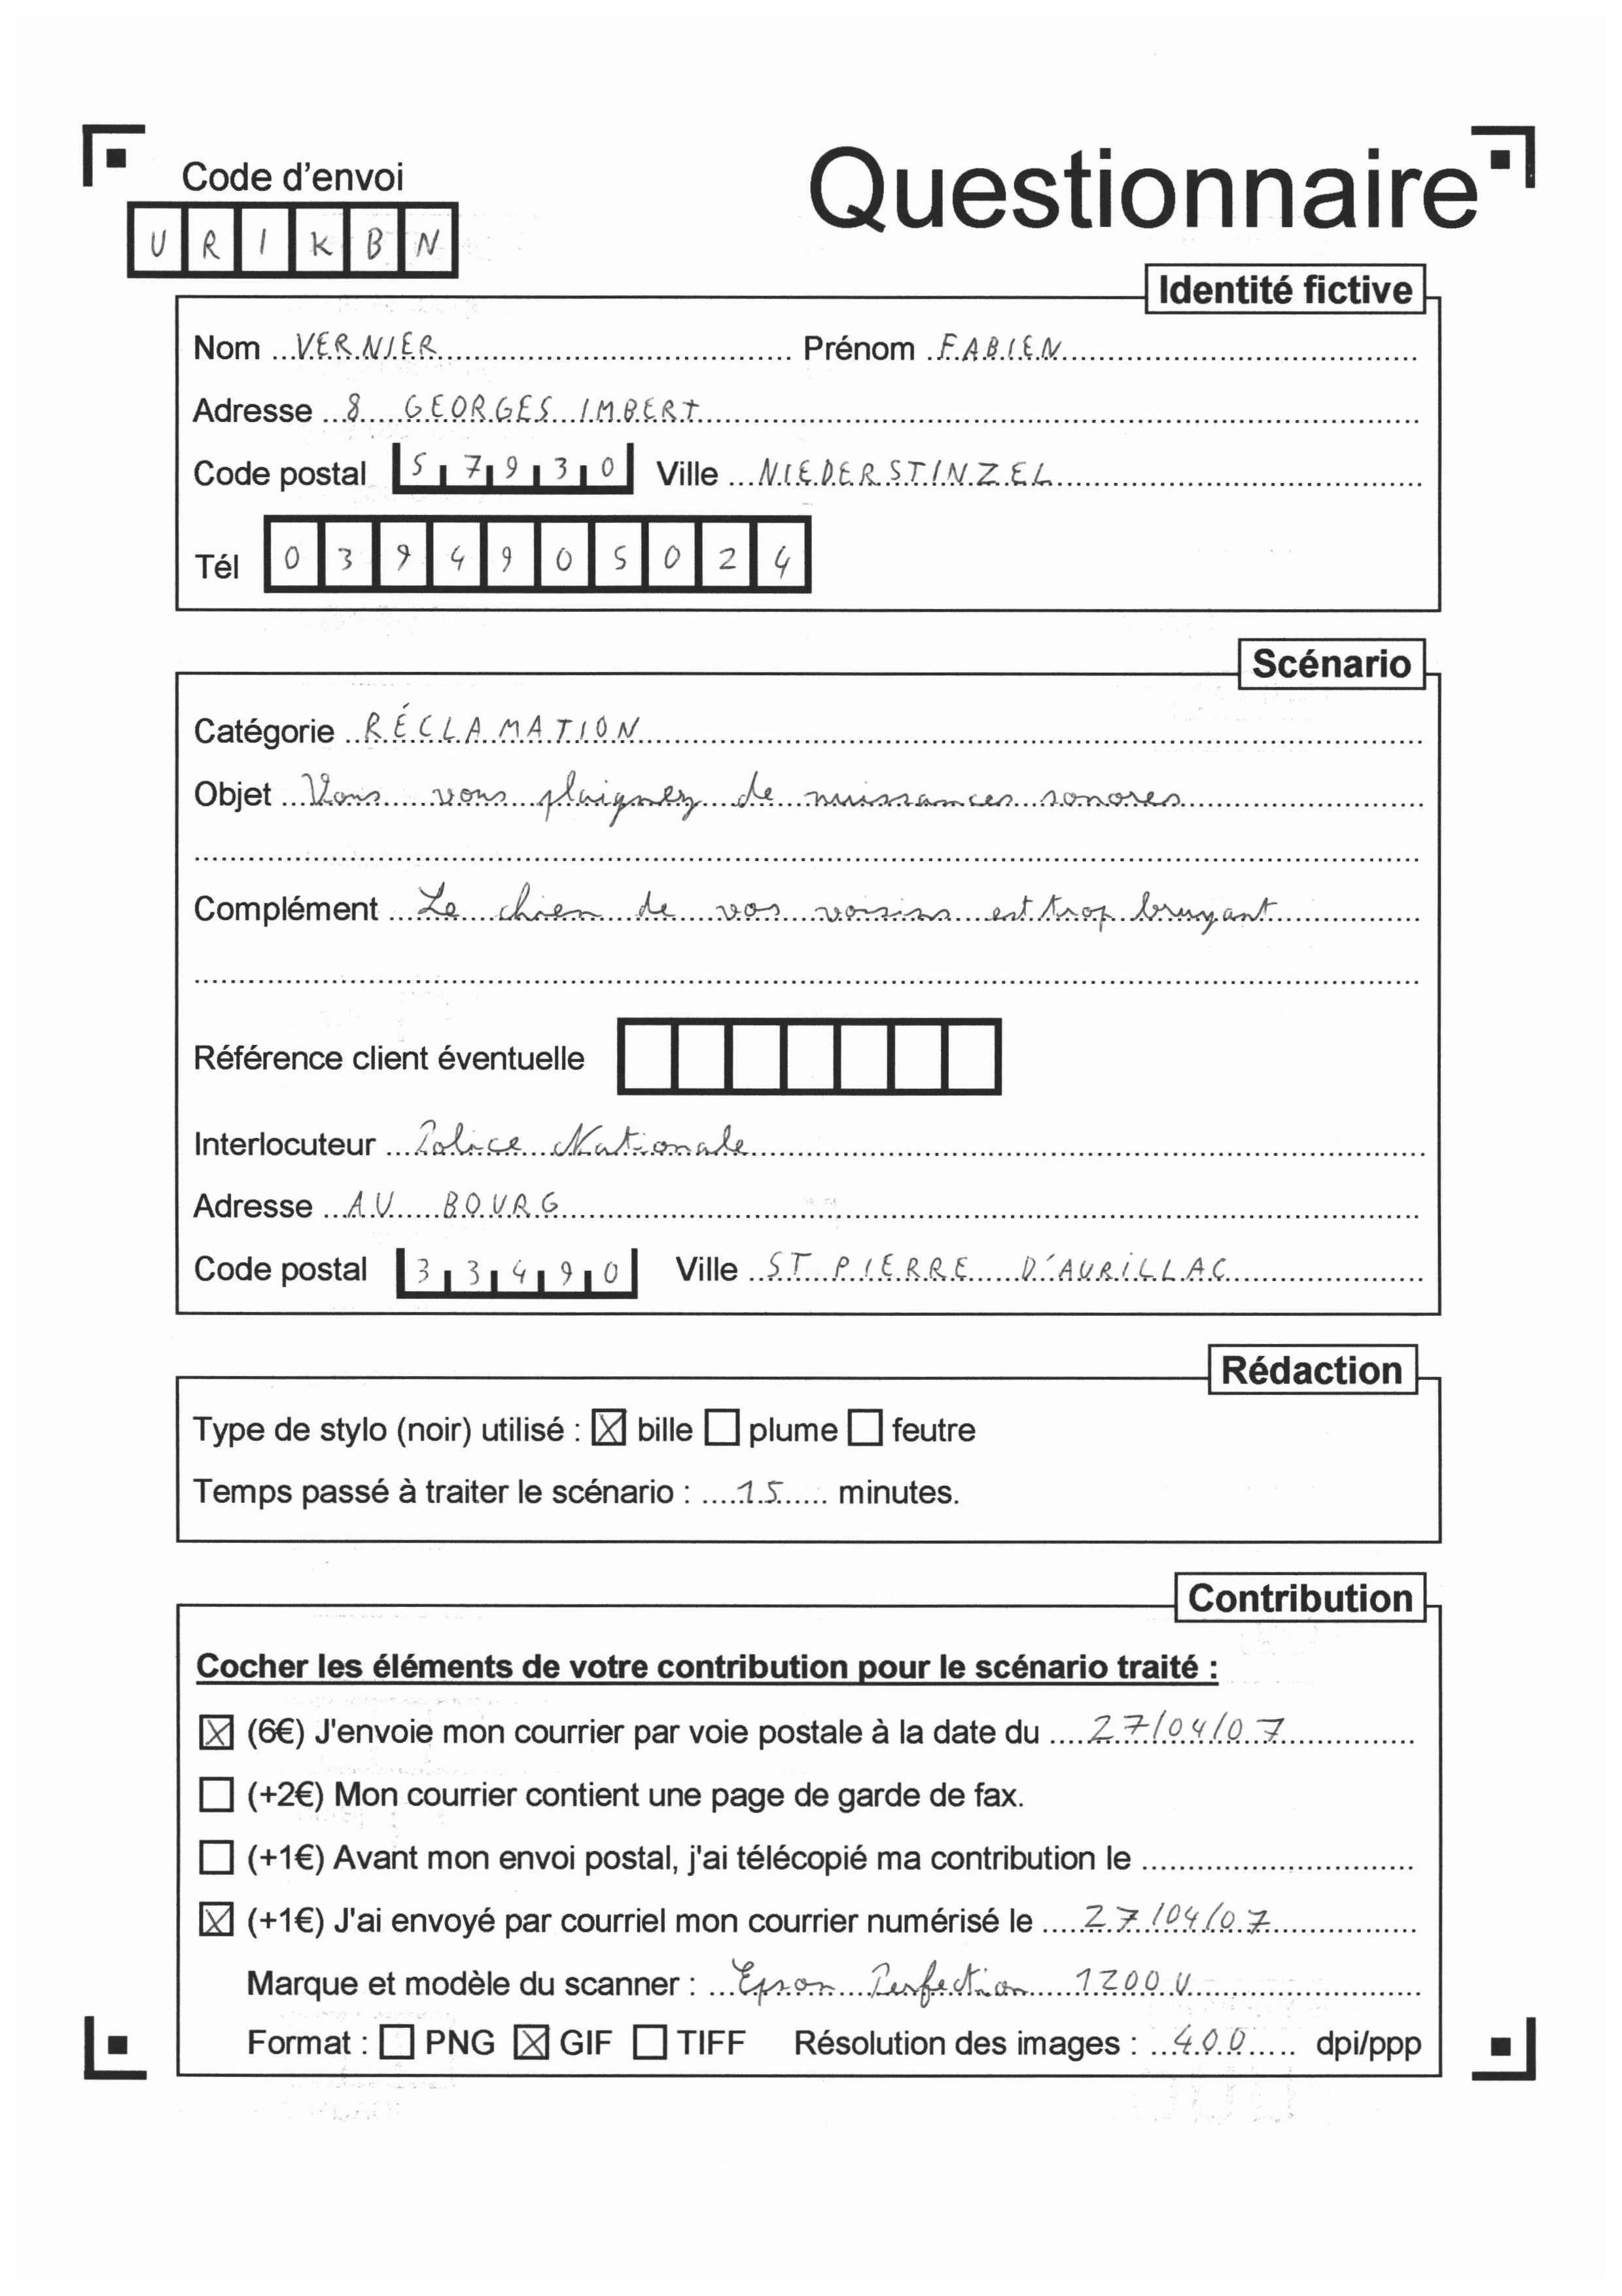 Code d'envoi
Questionnaire
URIKBN
Identité fictive
Nom VERNIER Prénom FABIEN
Adresse 8 GEORGES IMBERT
Code postal 57930 Ville NIEDERSTINZEL
Tél 0394905024
Scénario
Catégorie RÉCLAMATION
Objet Vous vous plaignez de nuissances sonores
Complément Le chien de vos voisins est trop bruyant
Référence client éventuelle
Interlocuteur Police Nationale
Adresse AU BOURG
Code postal 33490 Ville ST PIERRE D'AURILLAC
Rédaction
Type de stylo (noir) utilisé : ☒ bille ☐ plume ☐ feutre
Temps passé à traiter le scénario : 15 minutes.
Contribution
Cocher les éléments de votre contribution pour le scénario traité :
☒ (6€) J'envoie mon courrier par voie postale à la date du 27/04/07
☐ (+2€) Mon courrier contient une page de garde de fax.
☐ (+1€) Avant mon envoi postal, j'ai télécopié ma contribution le
☒ (+1€) J'ai envoyé par courriel mon courrier numérisé le 27/04/07
Marque et modèle du scanner : Epson Perfection 1200U
Format : ☐ PNG ☒ GIF ☐ TIFF Résolution des images : 400 dpi/ppp